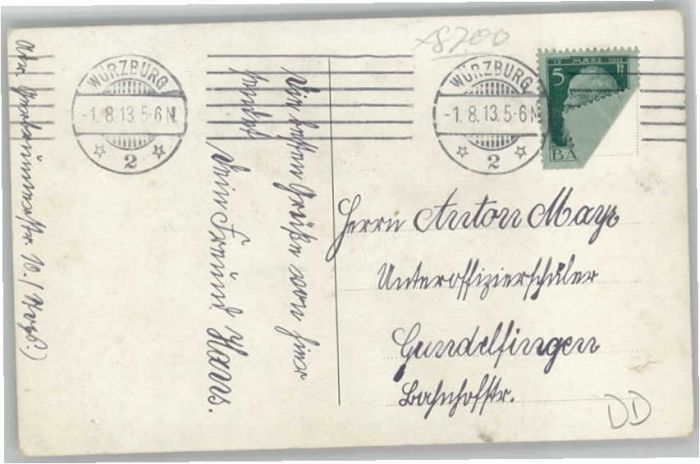 8700
WÜRZBURG
-1.8.13.5-6N.
2
WÜRZBURG
-1.8.13.5-6N.
2
12. MÄRZ 1911
5 Pf
BA
Die besten Grüße von hier
sendet
Dein Freund Hans.
Herrn Anton Mayr
Unteroffizierschüler
Gundelfingen
Bahnhofstr.
10./
DD